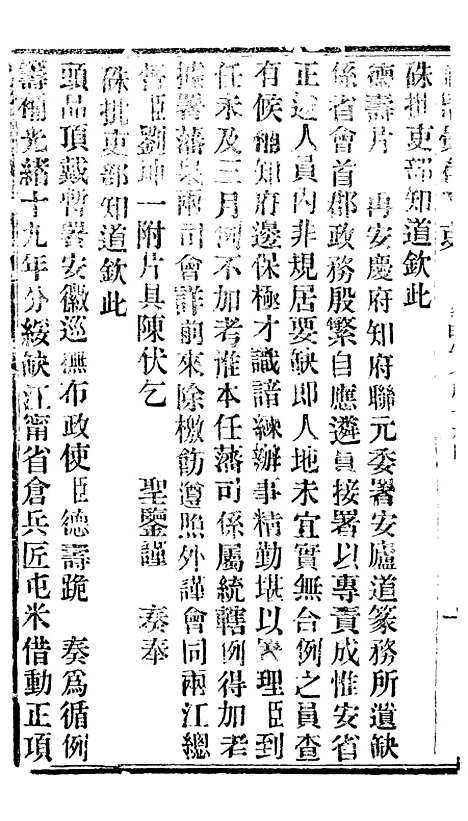 硃批吏部知道欽此
德壽片 再安慶府知府聯元委署安廬道篆務所遺缺
係省會首郡政務殷繁自應遴員接署以專責成惟安省
正途人員內非規居要缺即人地未宜實無合例之員查
有候補知府邊保極才識諳練辦事精勤堪以署理臣到
任未及三月例不加考惟本任藩司係屬統轄例得加考
據署藩臬兩司會詳前來除檄飭遵照外謹會同兩江總
督臣劉坤一附片具陳伏乞 聖鑒謹 奏奉
硃批吏部知道欽此
頭品頂戴暫署安徽巡撫布政使臣德壽跪 奏爲循例
籌補光緒十九年分綏缺江甯省倉兵匠屯米借動正項